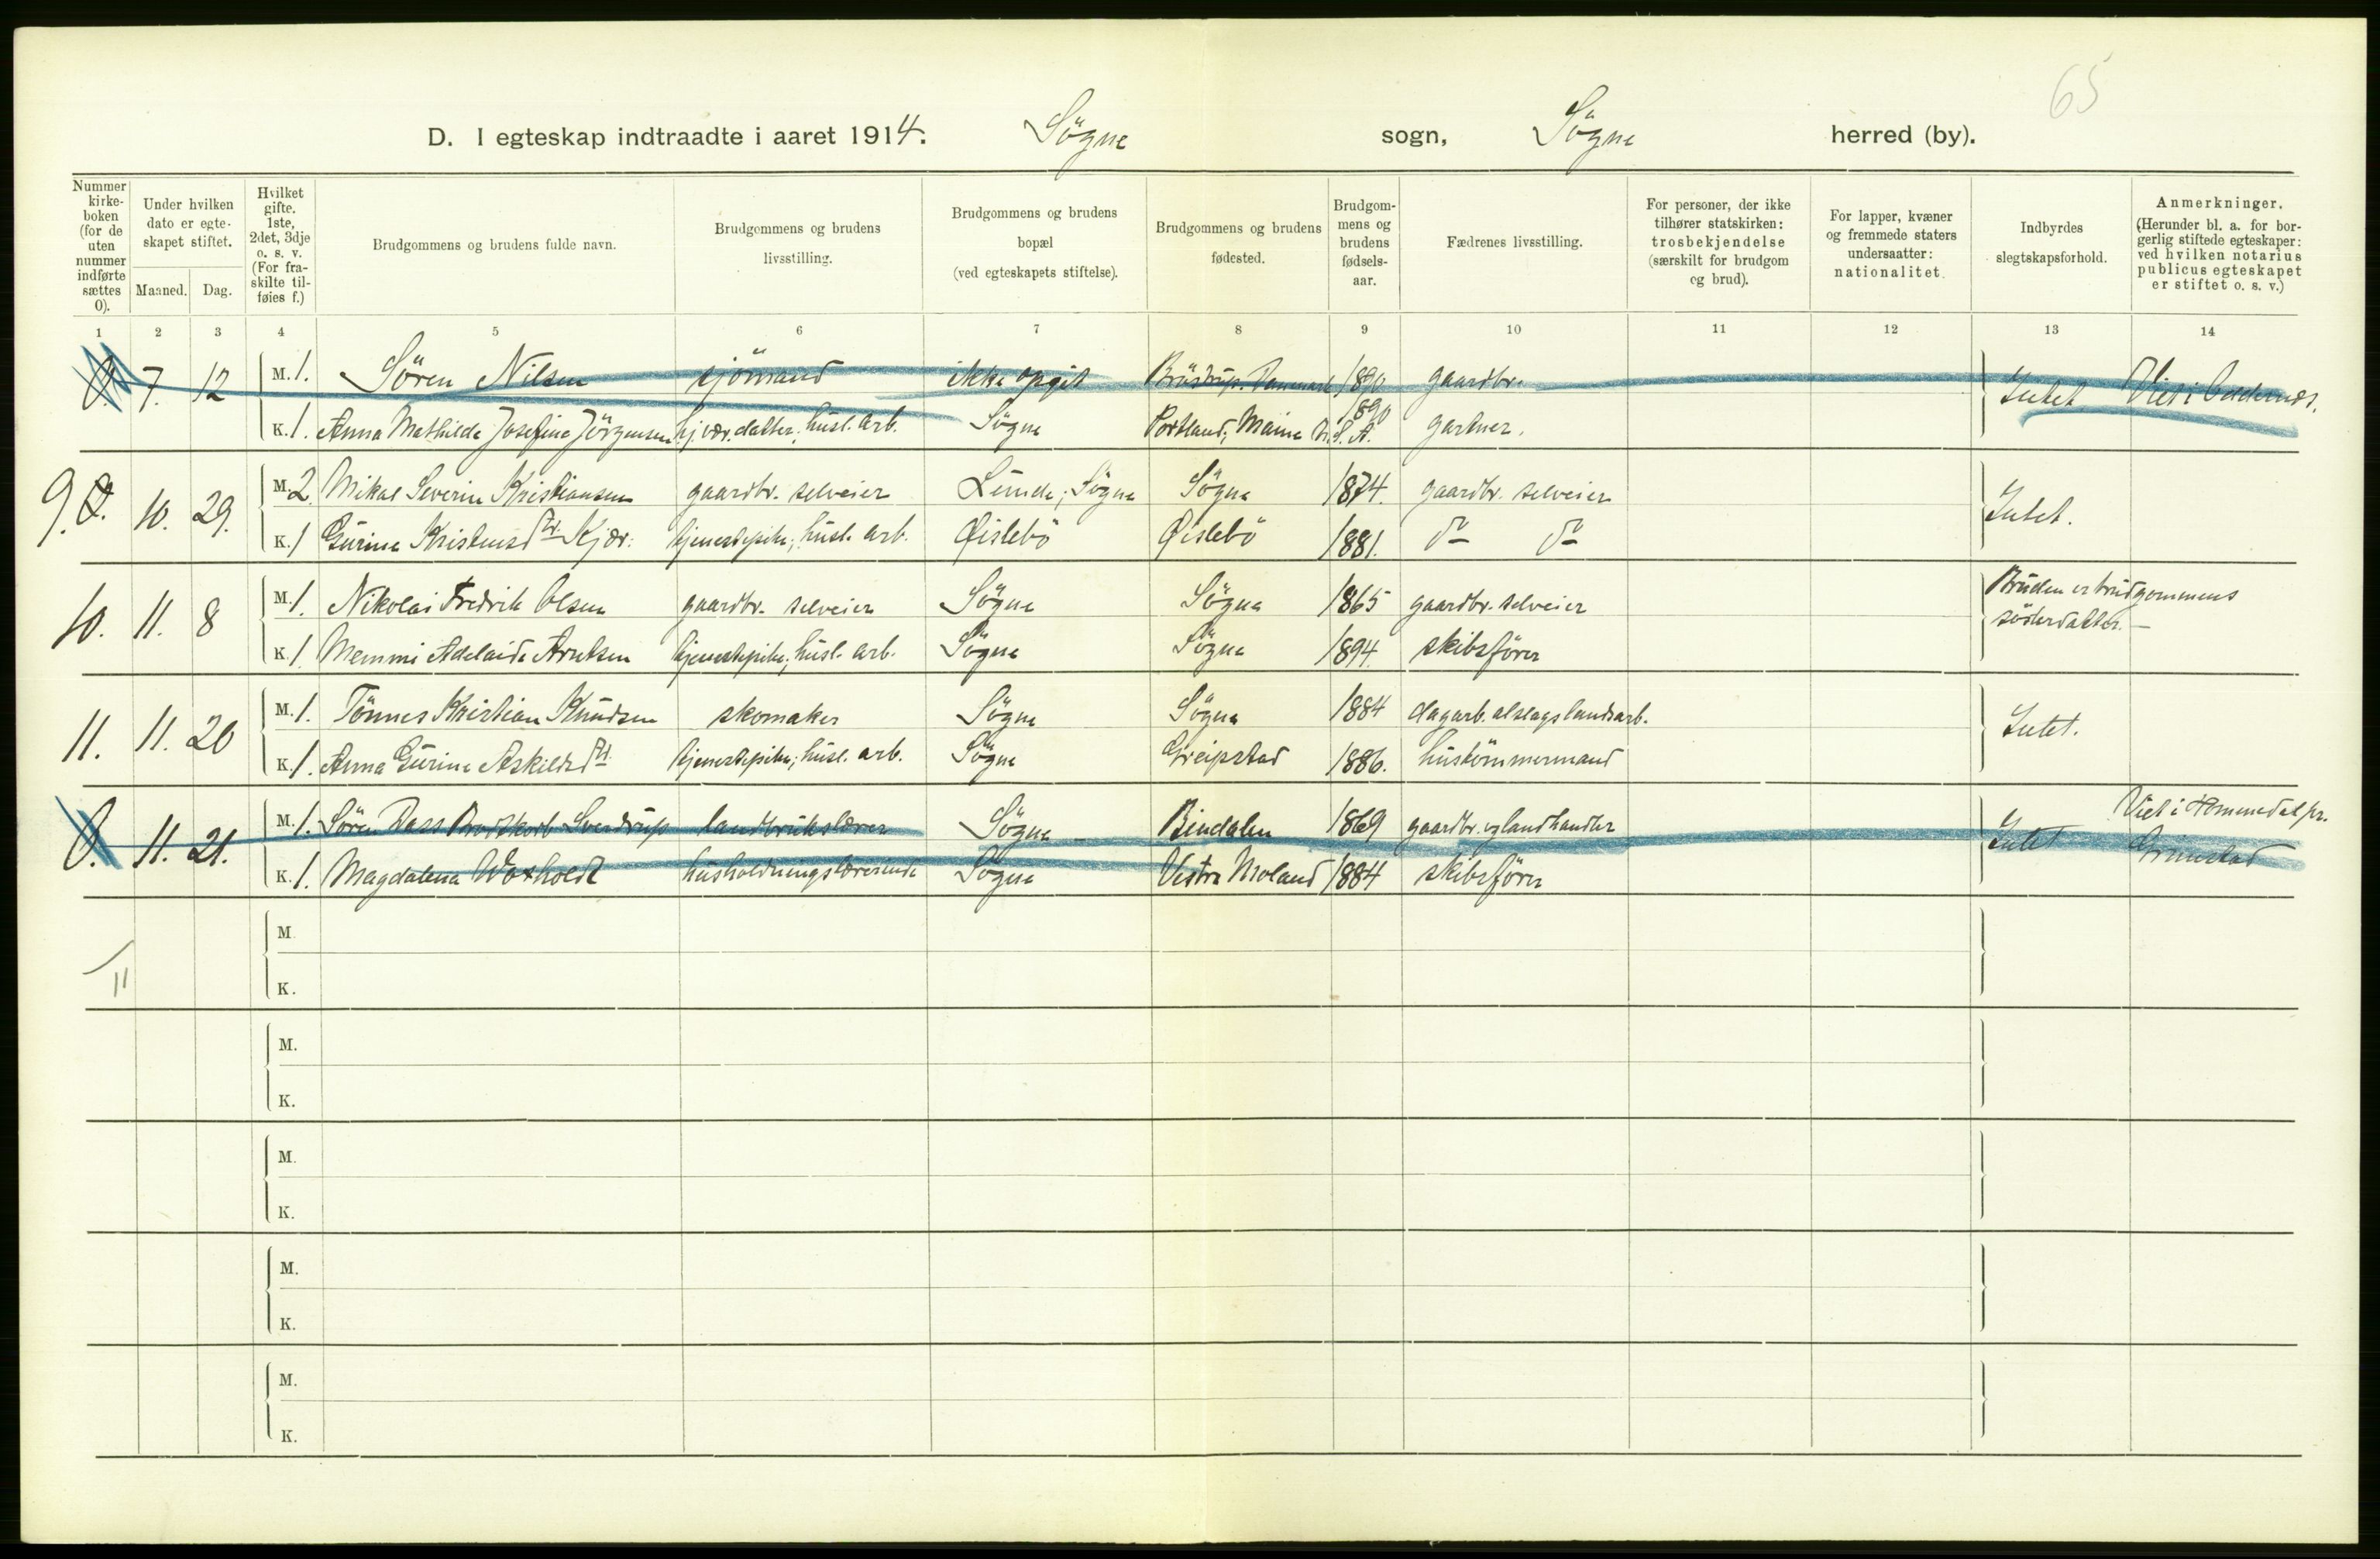 65
D. I egteskap indtraadte i aaret 1914. Sögne sogn, Sögne herred (by).
Nummer kirke-boken (for de uten nummer indførte sættes 0).
Under hvilken dato er egte-skapet stiftet.
Maaned. Dag.
Hvilket gifte. 1ste, 2det, 3dje o. s. v. (For fra-skilte til-føies f.)
Brudgommens og brudens fulde navn.
Brudgommens og brudens livsstilling.
Brudgommens og brudens bopæl (ved egteskapets stiftelse).
Brudgommens og brudens fødested.
Brudgom-mens og brudens fødsels-aar.
Fædrenes livsstilling.
For personer, der ikke tilhører statskirken: trosbekjendelse (særskilt for brudgom og brud).
For lapper, kvæner og fremmede staters undersaatter: nationalitet.
Indbyrdes slegtskapsforhold.
Anmerkninger. (Herunder bl. a. for bor-gerlig stiftede egteskaper: ved hvilken notarius publicus egteskapet er stiftet o. s. v.)
1 2 3 4 5 6 7 8 9 10 11 12 13 14
0. 7. 12 M. 1. Sören Nilsen sjömand ikke opgit Brüstrup. Danmark 1890 gaardbr. Intet Viet i Oddernes.
K. 1. Anna Mathilde Josefine Jörgensen hj.vær. datter, husl. arb. Sögne Portland, Maine U.S.A. 1890 gartner.
9. 0. 10. 29. M. 2 Mikal Severin Kristiansen gaardbr. selveier Lunde, Sögne Sögne 1874. gaardbr. selveier Intet.
K. 1 Gurine Kristensdtr. Kjær. tjenestepike, husl. arb. Øislebö Øislebö 1881. do do
10. 11. 8 M. 1. Nikolai Fredrik Olsen gaardbr. selveier Sögne Sögne 1865 gaardbr. selveier Bruden er brudgommens
K. 1. Memmi Adelaide Arntsen tjenestepike, husl. arb. Sögne Sögne 1894. skibsförer sösterdatter. —
11. 11. 20 M. 1. Tönnes Kristian Knudsen skomaker Sögne Sögne 1884 dagarb. alslags landsarb. Intet.
K. 1. Anna Gurine Askildsdtr. tjenestepike, husl. arb. Sögne Greipstad 1886. hustömmermand
0. 11. 21. M. 1. Sören Dass Brodtkorb Sverdrup landbrukslærer Sögne Bindalen 1869 gaardbr. og landhandler Intet Viet i Hommedal pr.
K. 1. Magdalena Woxholdt husholdningslærerinde Sögne Vestre Moland 1884 skibsförer Grimstad
M.
11
K.
M.
K.
M.
K.
M.
K.
M.
K.